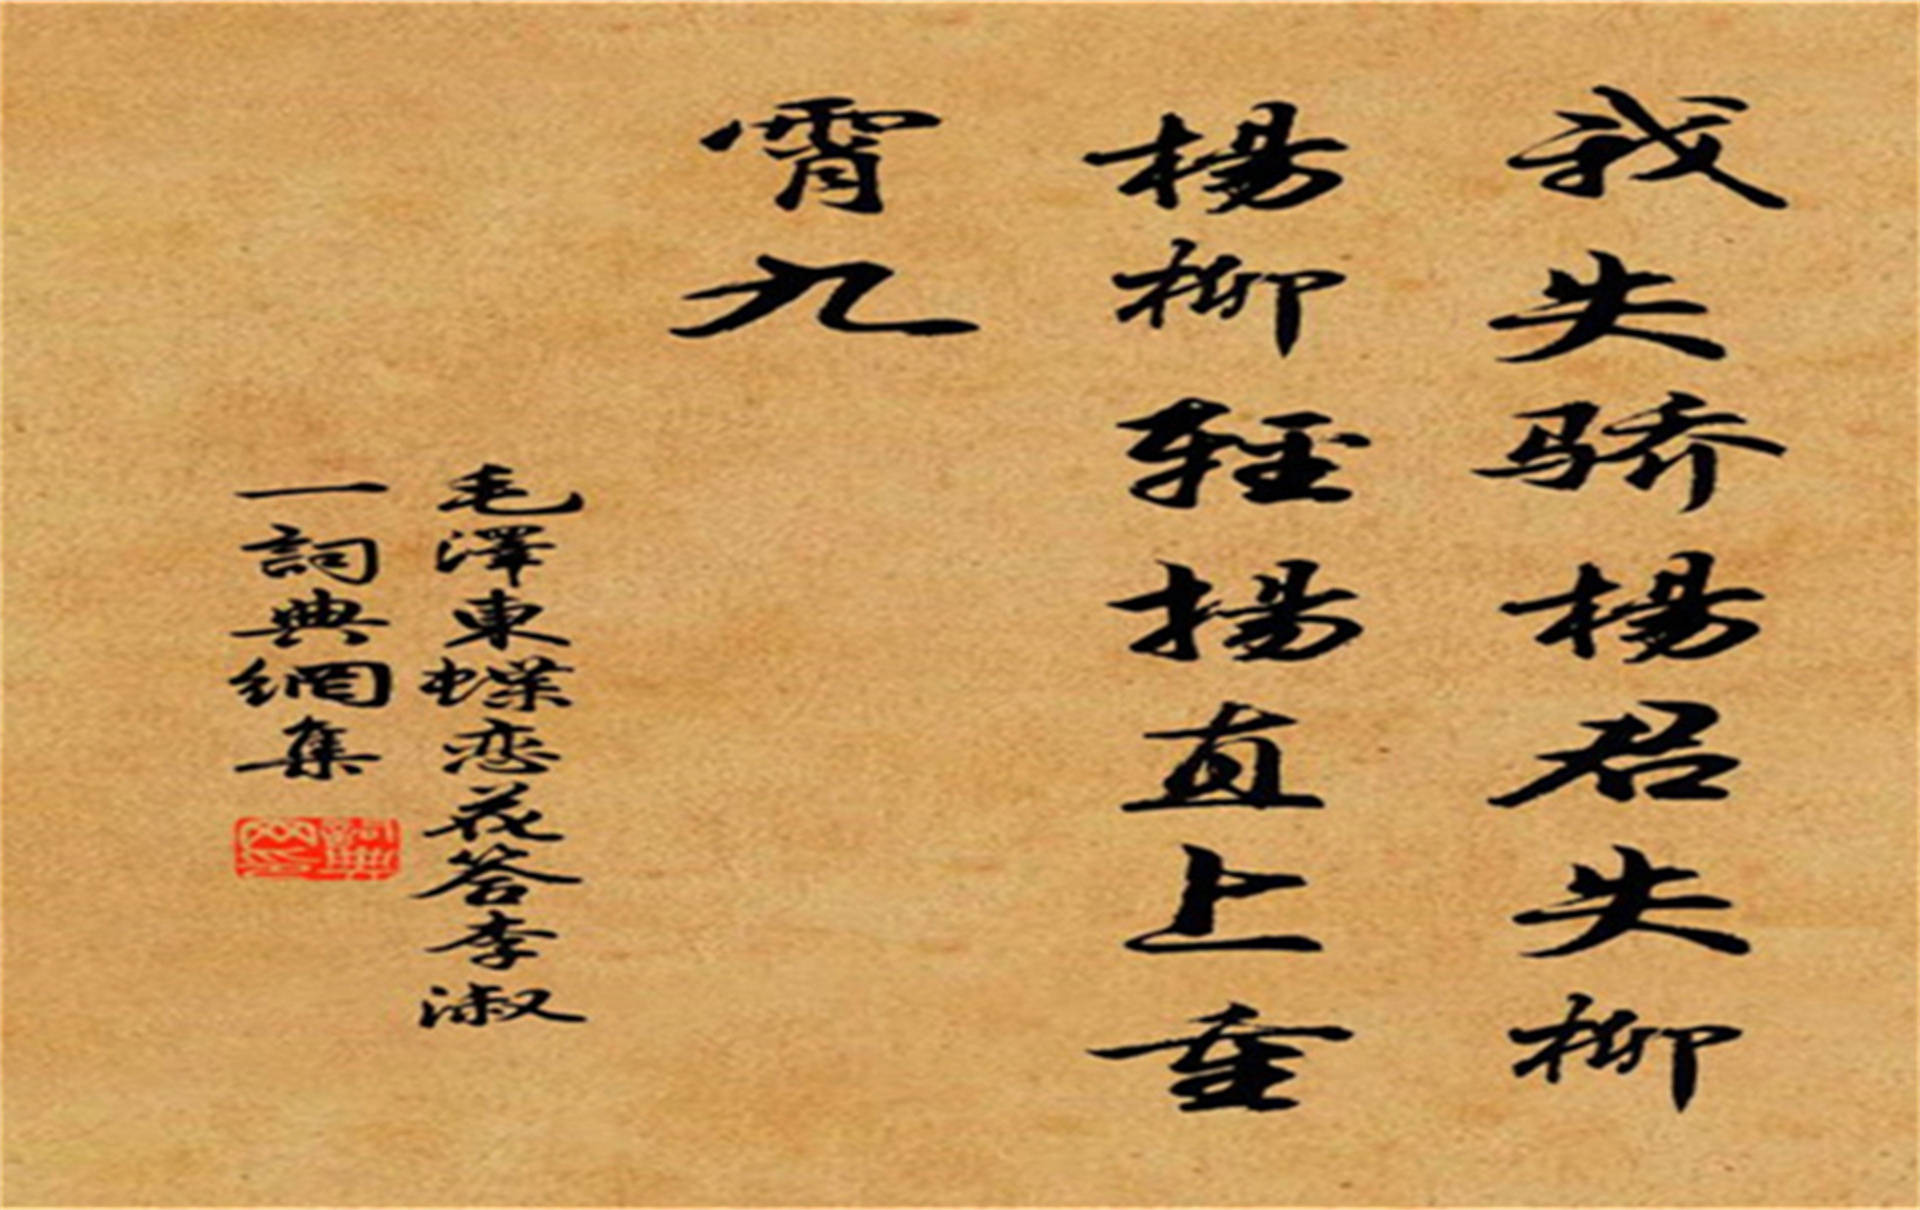 我失骄楊君失柳
楊柳輕揚直上重
霄九
毛澤東蝶恋花答李淑
一詞典網集